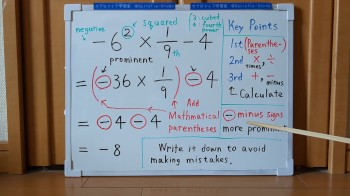 negative squared 3: cubed
4: fourth power
−6² × 1/9 − 4
prominent 9th
= (−36 × 1/9) − 4
Add
Mathmatical
parentheses
= −4 −4
= −8
Key Points
1st (Parenthe-
ses)
2nd × ÷
times,
3rd +, −
minus
↑ Calculate
⊖ minus signs
more promin
Write it down to avoid
making mistakes.